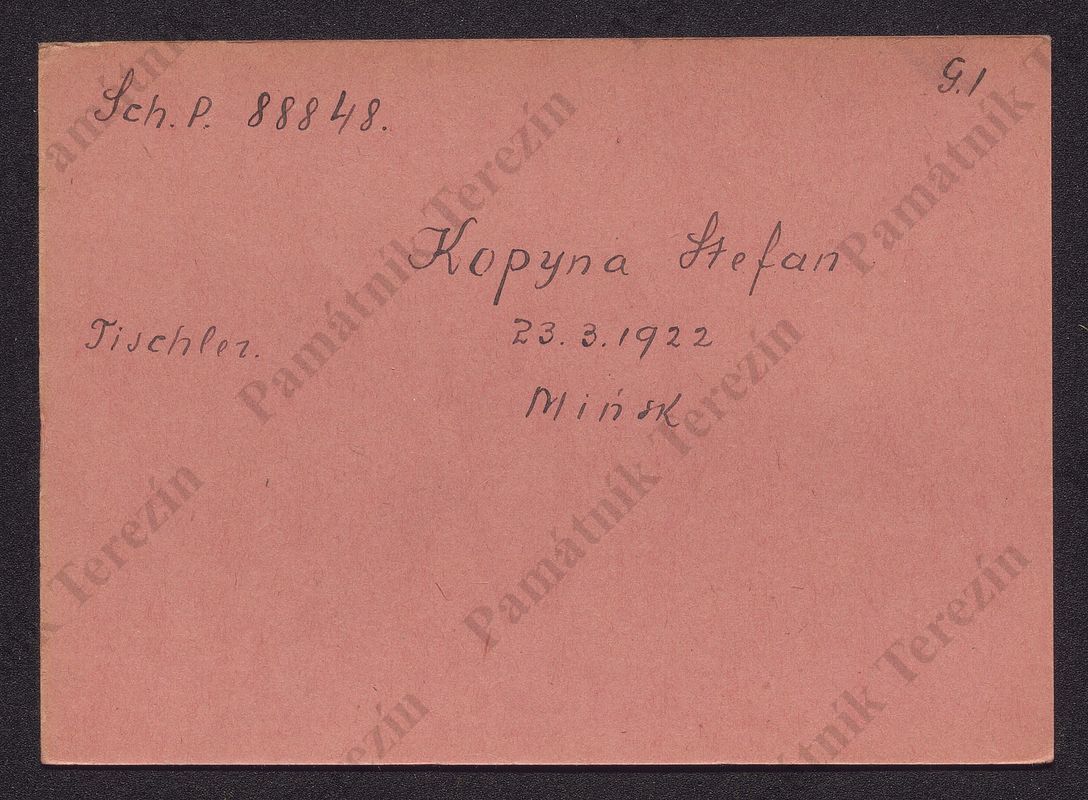 G.1
Sch. P. 88848.
Kopyna Stefan
23. 3. 1922
Tischler.
Mińsk
Památník Terezín
Památník Terezín
Památník Terezín
Památník Terezín